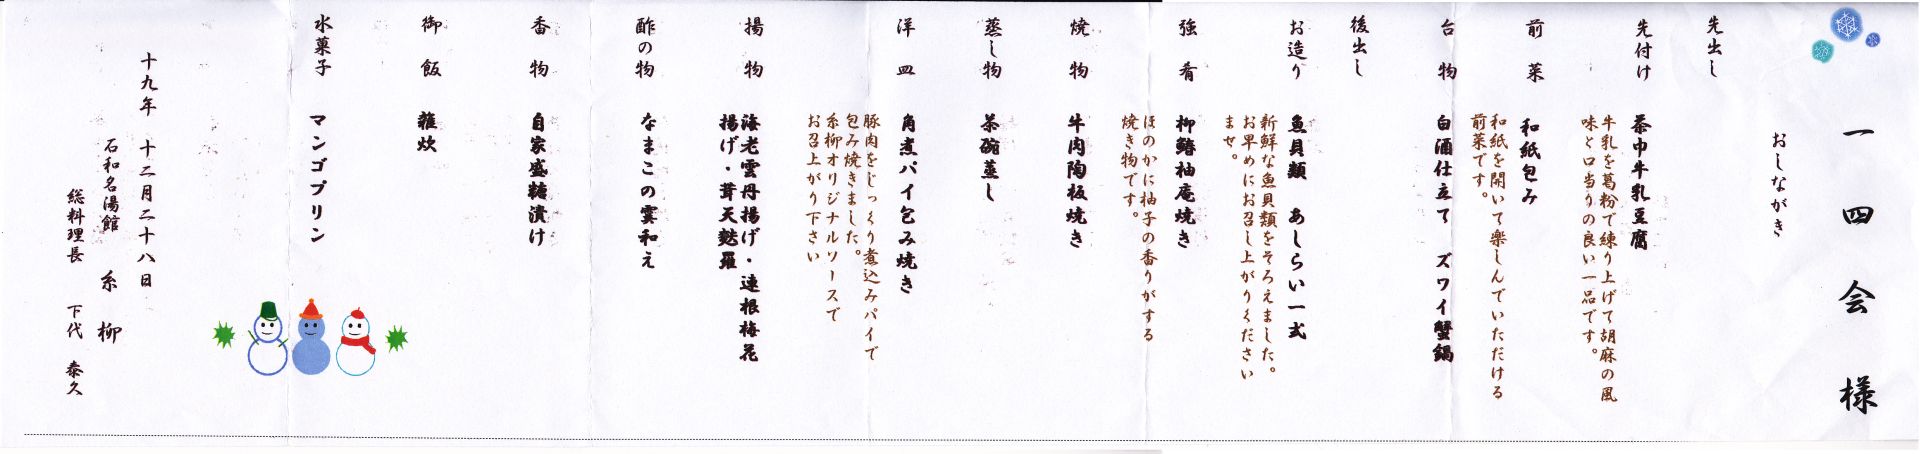 一四会様
おしながき
先出し
先付け 茶巾牛乳豆腐
牛乳を葛粉で練り上げて胡麻の風
味と口当りの良い一品です。
前菜 和紙包み
和紙を開いて楽しんでいただける
前菜です。
台物 白酒仕立て ズワイ蟹鍋
後出し
お造り 魚貝類 あしらい一式
新鮮な魚貝類をそろえました。
お早めにお召し上がりください
ませ。
強肴 柳鰆柚庵焼き
ほのかに柚子の香りがする
焼き物です。
焼物 牛肉陶板焼き
蒸し物 茶碗蒸し
洋皿 角煮パイ包み焼き
豚肉をじっくり煮込みパイで
包み焼きました。
糸柳オリジナルソースで
お召上がり下さい
揚物 海老雲丹揚げ・連根梅花
揚げ・茸天麩羅
酢の物 なまこの霙和え
香物 自家盛糠漬け
御飯 雑炊
水菓子 マンゴプリン
十九年 十二月二十八日
石和名湯館 糸柳
総料理長 下代 泰久